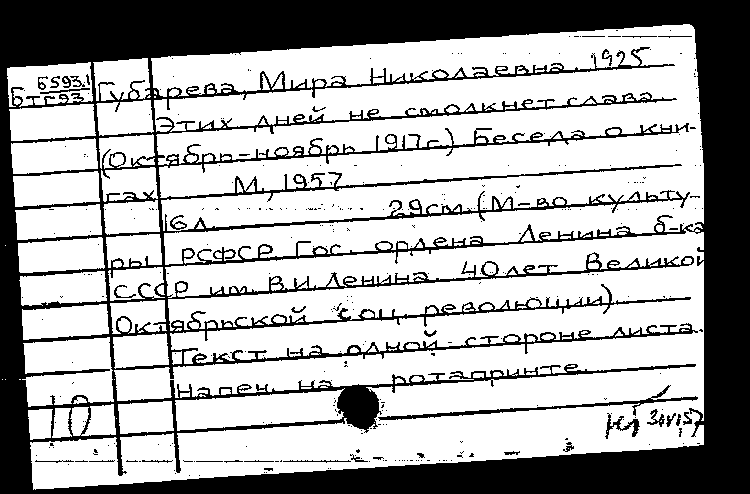 Б593.1
БтГ93 Губарева, Мира Николаевна. 1925
Этих дней не смолкнет слава.
(Октябрь-ноябрь 1917г.) Беседа о кни-
гах. М., 1957
16л. 29см. (М-во культу-
ры РСФСР. Гос. ордена Ленина б-ка
СССР им. В.И. Ленина. 40 лет Великой
Октябрьской соц. революции).
Текст на одной стороне листа.
Напеч. на ротапринте.
10